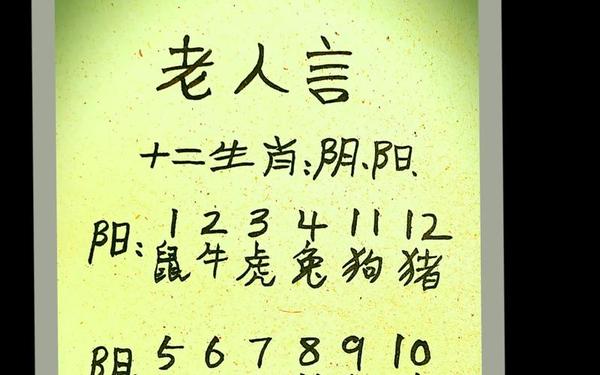 老人言
十二生肖:阴、阳、
阳: 1 2 3 4 11 12
鼠 牛 虎 兔 狗 猪
5 6 7 8 9 10